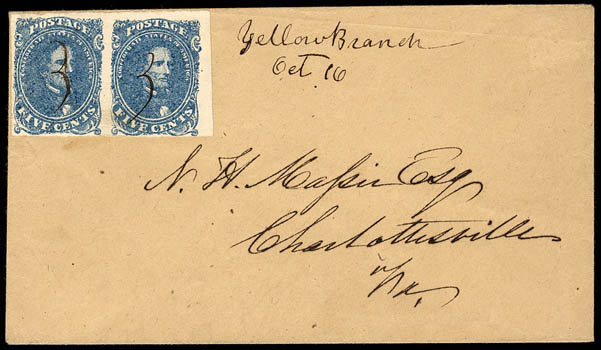 POSTAGE POSTAGE
CONFEDERATE STATES OF AMERICA CONFEDERATE STATES OF AMERICA
3 3
FIVE CENTS FIVE CENTS
Yellow Branch
Oct 16
N. H. Massie Esq
Charlottesville
Va.